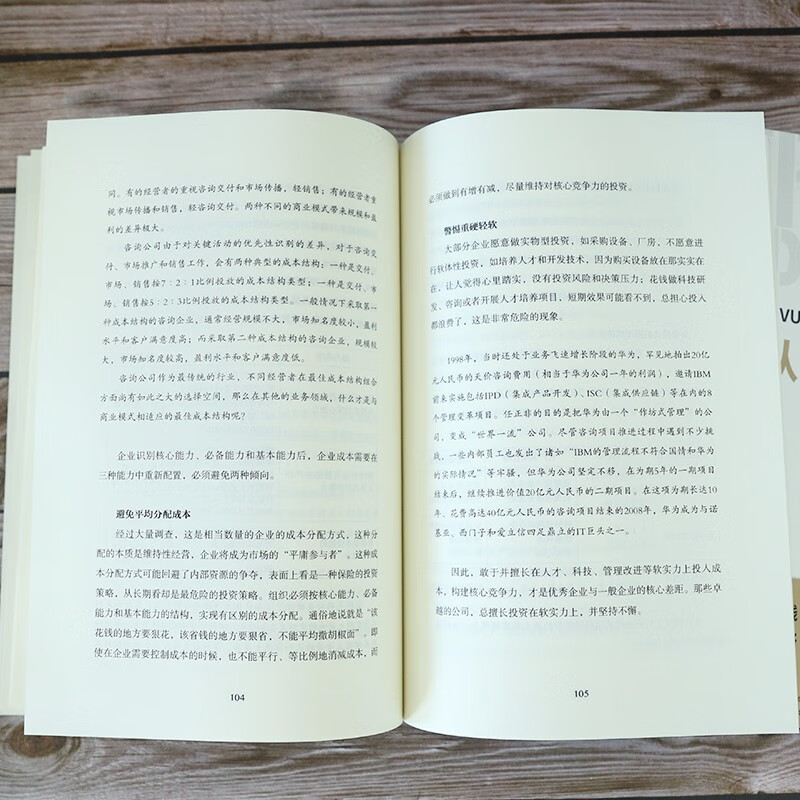 同。有的经营者的重视咨询交付和市场传播，轻销售；有的经营者重
视市场传播和销售，轻咨询交付。两种不同的商业模式带来规模和盈
利的差异极大。
咨询公司由于对关键活动的优先性识别的差异，对于咨询交
付、市场推广和销售工作，会有两种典型的成本结构：一种是交付、
市场、销售按7：2：1比例投放的成本结构类型；一种是交付、市
场、销售按5：2：3比例投放的成本结构类型。一般情况下采取第一
种成本结构的咨询企业，通常经营规模不大，市场知名度较小，盈利
水平和客户满意度高；而采取第二种成本结构的咨询企业，规模较
大，市场知名度较高，盈利水平和客户满意度低。
咨询公司作为最传统的行业，不同经营者在最佳成本结构组合
方面尚有如此之大的选择空间，那么在其他的业务领域，什么才是与
商业模式相适应的最佳成本结构呢？
企业识别核心能力、必备能力和基本能力后，企业成本需要在
三种能力中重新配置，必须避免两种倾向。
避免平均分配成本
经过大量调查，这是相当数量的企业的成本分配方式，这种分
配的本质是维持性经营，企业将成为市场的“平庸参与者”。这种成
本分配方式可能回避了内部资源的争夺，表面上看是一种保险的投资
策略，从长期看却是最危险的投资策略。组织必须按核心能力、必备
能力和基本能力的结构，实现有区别的成本分配。通俗地说就是“该
花钱的地方要狠花，该省钱的地方要狠省，不能平均撒胡椒面”。即
使在企业需要控制成本的时候，也不能平行、等比例地消减成本，而
104
必须做到有增有减，尽量维持对核心竞争力的投资。
警惕重硬轻软
大部分企业愿意做实物型投资，如采购设备、厂房，不愿意进
行软体性投资，如培养人才和开发技术，因为购买设备放在那实实在
在，让人觉得心里踏实，没有投资风险和决策压力；花钱做科技研
发、咨询或者开展人才培养项目，短期效果可能看不到，总担心投入
都浪费了，这是非常危险的现象。
1998年，当时还处于业务飞速增长阶段的华为，罕见地抽出20亿
元人民币的天价咨询费用（相当于华为公司一年的利润），邀请IBM
前来实施包括IPD（集成产品开发）、ISC（集成供应链）等在内的8
个管理变革项目。任正非的目的是把华为由一个“作坊式管理”的公
司，变成“世界一流”公司。尽管咨询项目推进过程中遇到不少挑
战，一些内部员工也发出了诸如“IBM的管理流程不符合国情和华为
的实际情况”等牢骚，但华为公司坚定不移，在为期5年的一期项目
结束后，继续推进价值20亿元人民币的二期项目。在这项为期长达10
年、花费高达40亿元人民币的咨询项目结束的2008年，华为成为与诺
基亚、西门子和爱立信四足鼎立的IT巨头之一。
因此，敢于并擅长在人才、科技、管理改进等软实力上投入成
本，构建核心竞争力，才是优秀企业与一般企业的核心差距。那些卓
越的公司，总擅长投资在软实力上，并坚持不懈。
105
VU
从